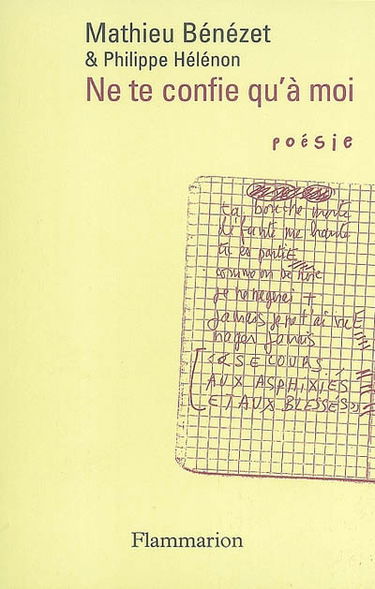 Mathieu Bénézet
& Philippe Hélénon
Ne te confie qu'à moi
poésie
ta bouche morte
de faute me hante
tu es partiE
comme on se noie
je ne nagerai +
jamais je ne t'ai vuE
nager jamais
[<<SECOURS
AUX ASPHIXIÉS
ET AUX BLESSÉS>>
Flammarion